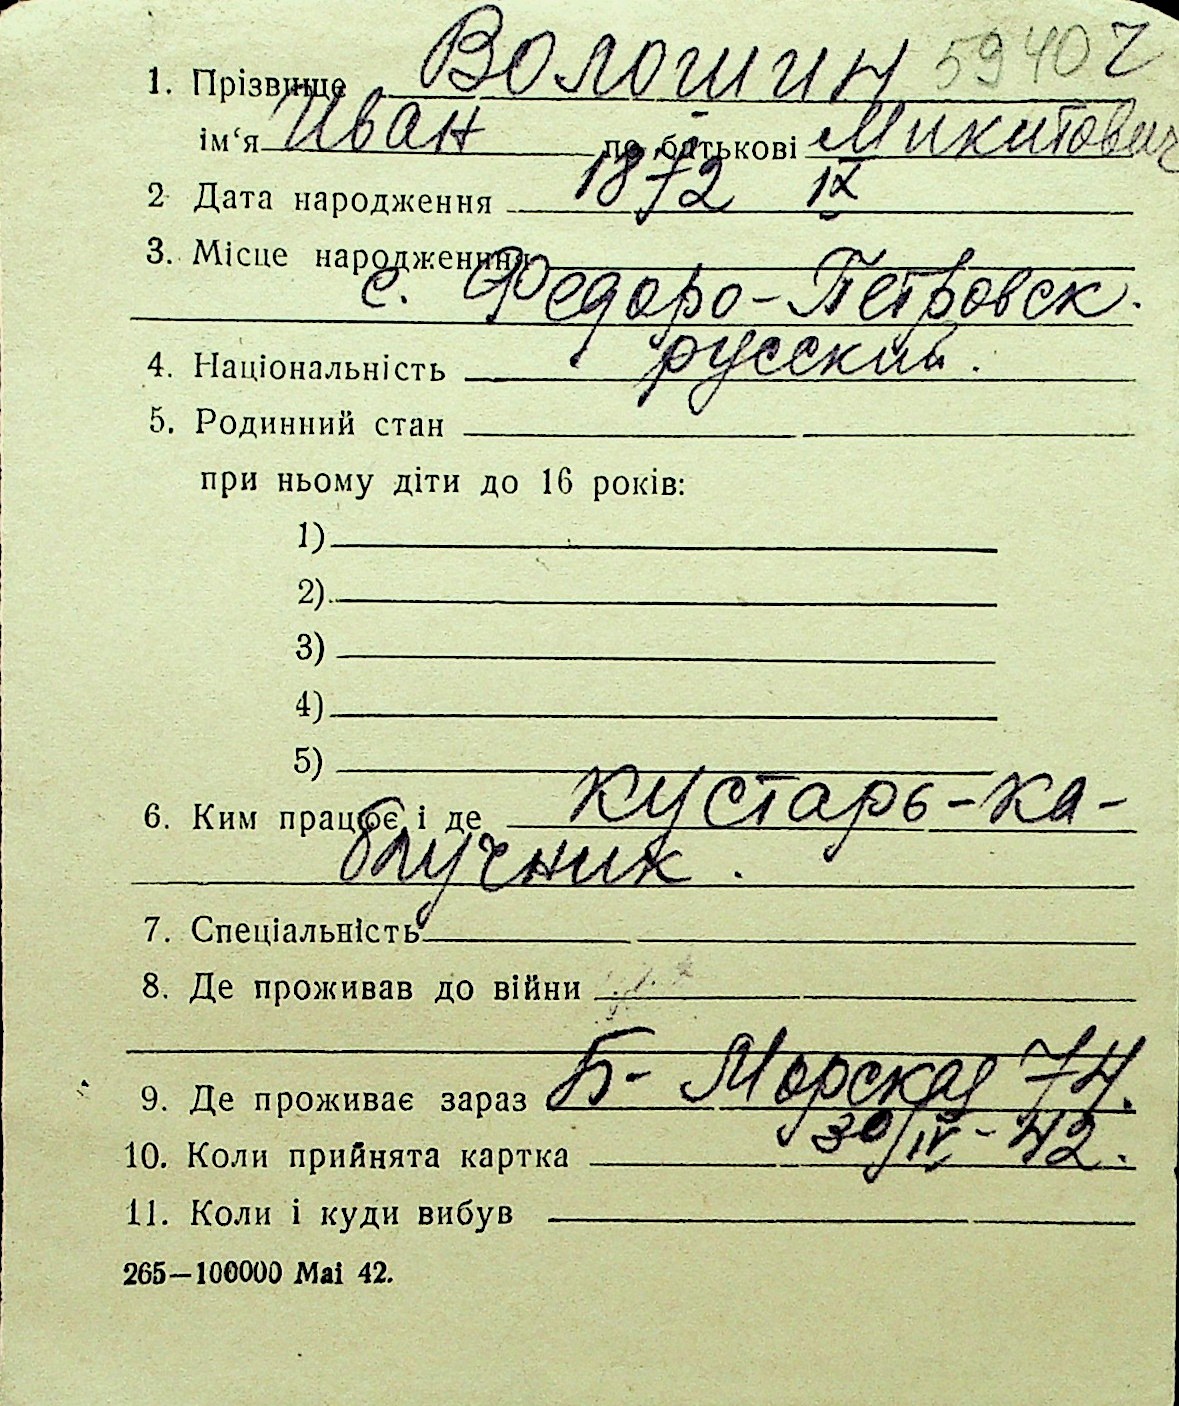 1. Прізвище Волошин 59404
ім‘я Иван по батькові Микитович
2 Дата народження 1872 IX
3. Місце народження
с. Федоро-Петровск.
4. Національність русский.
5. Родинний стан
при ньому діти до 16 років:
1)
2)
3)
4)
5)
6. Ким працює і де кустарь-ка-
блучник.
7. Спеціальність
8. Де проживав до війни
9. Де проживає зараз Б- Морская 74.
10. Коли прийнята картка 30/IV-42.
11. Коли і куди вибув
265—100000 Mai 42.